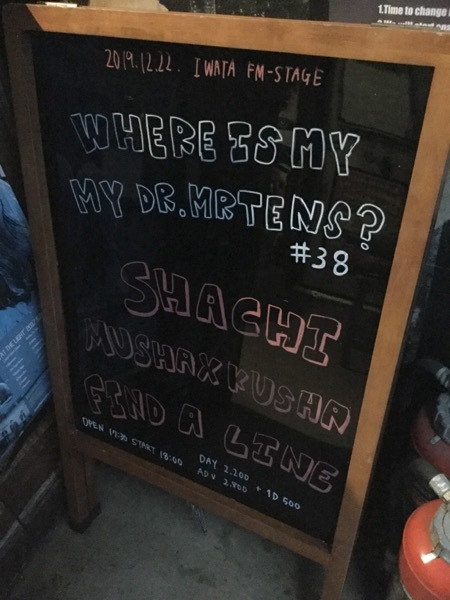 1.Time to change
2019.12.22. IWATA FM-STAGE
WHERE IS MY
MY DR.MRTENS?
#38
SHACHI
MUSHAXKUSHA
FIND A LINE
OPEN 17:30 START 18:00 DAY 2.200 + 1D 500
ADV 2.800